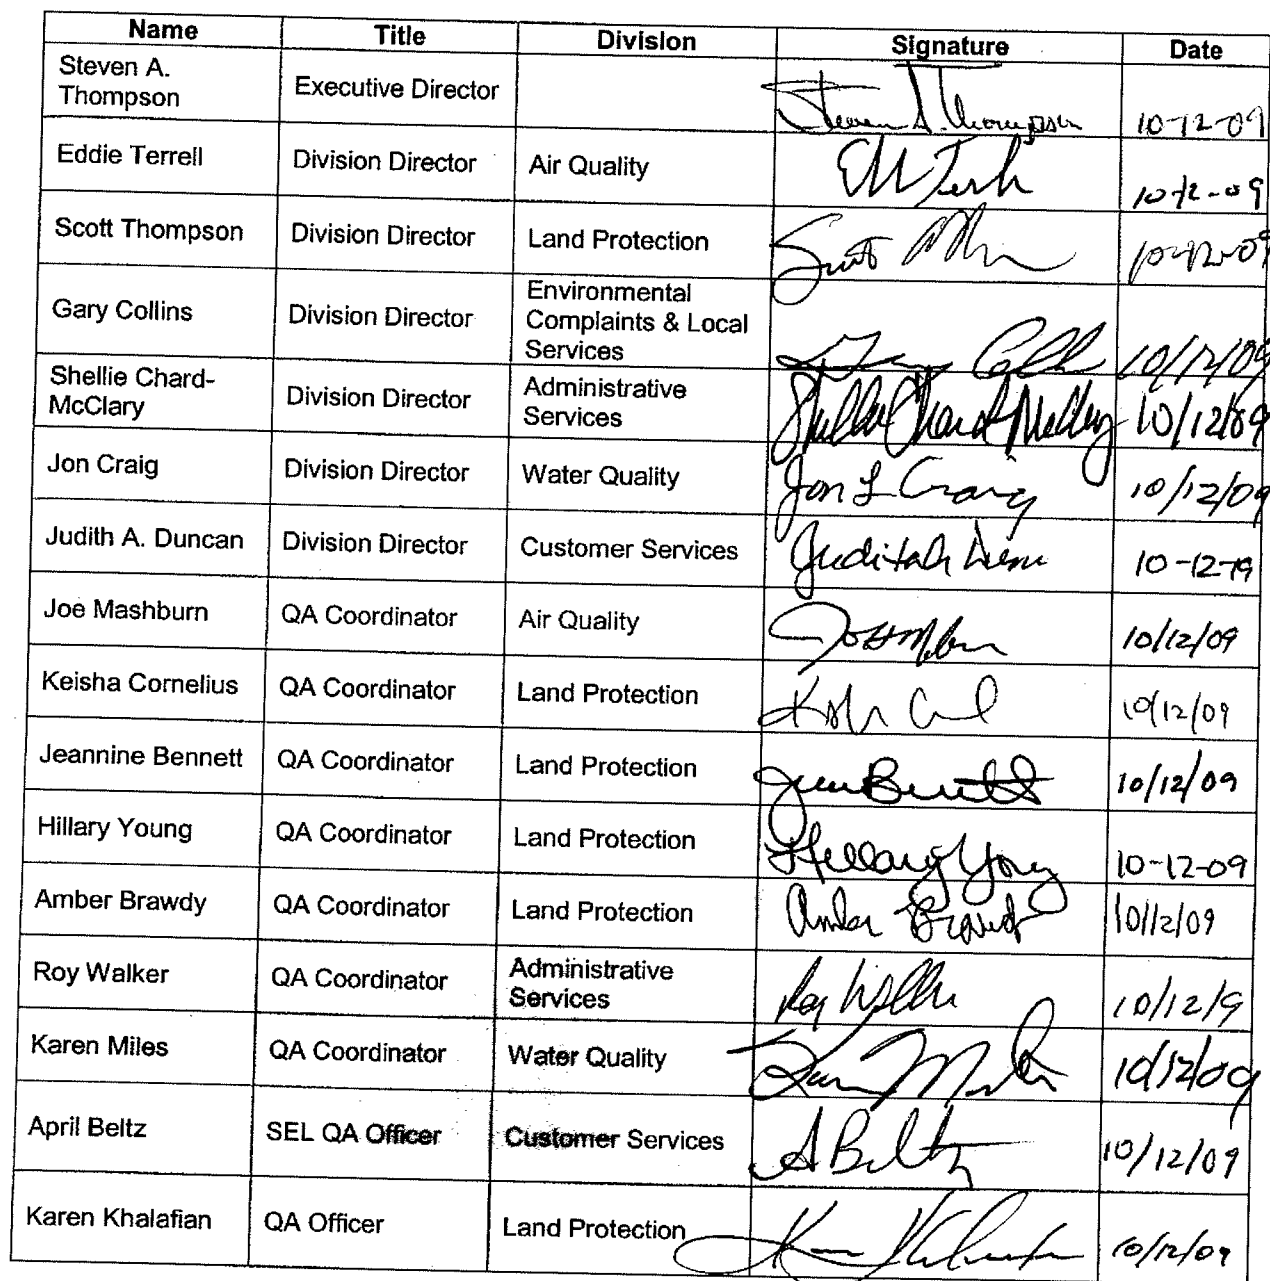 Name Title Division Signature Date
Steven A. Thompson Executive Director Steven A. Thompson 10-12-09
Eddie Terrell Division Director Air Quality 10-12-09
Scott Thompson Division Director Land Protection Scott 10-12-09
Gary Collins Division Director Environmental Complaints & Local Services Gary 10/12/09
Shellie Chard-McClary Division Director Administrative Services Shellie Chard-McClary 10/12/09
Jon Craig Division Director Water Quality Jon L Craig 10/12/09
Judith A. Duncan Division Director Customer Services 10-12-19
Joe Mashburn QA Coordinator Air Quality 10/12/09
Keisha Cornelius QA Coordinator Land Protection 10/12/09
Jeannine Bennett QA Coordinator Land Protection 10/12/09
Hillary Young QA Coordinator Land Protection Hillary Young 10-12-09
Amber Brawdy QA Coordinator Land Protection Amber Brawdy 10/12/09
Roy Walker QA Coordinator Administrative Services Roy Walker 10/12/9
Karen Miles QA Coordinator Water Quality 10/12/09
April Beltz SEL QA Officer Customer Services A Beltz 10/12/09
Karen Khalafian QA Officer Land Protection 10/12/09